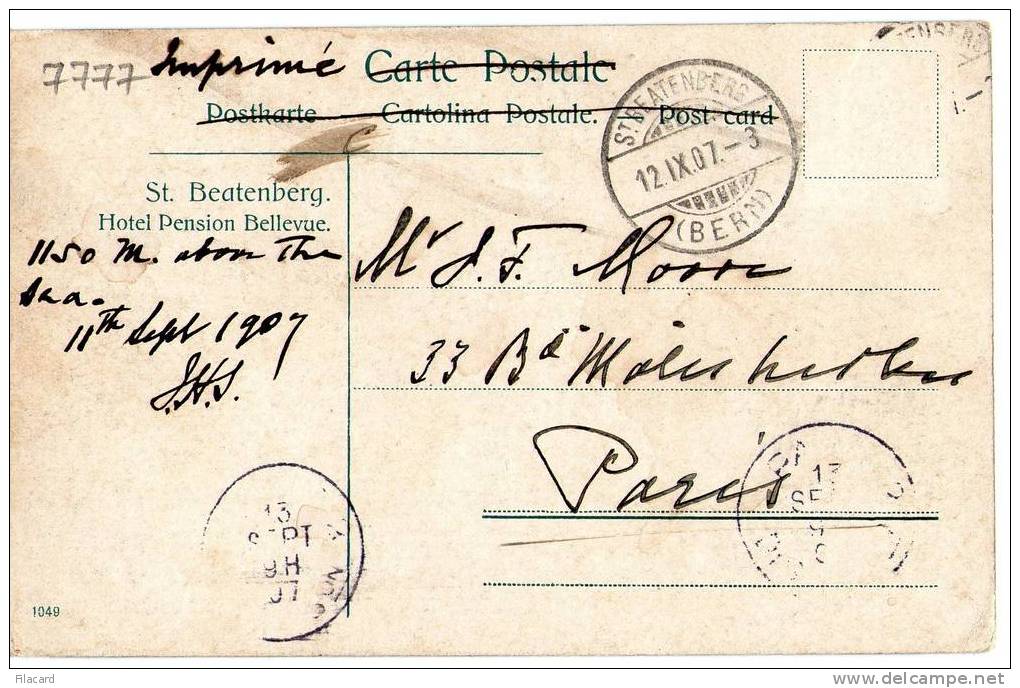 7777 Imprimé Carte Postale
Postkarte Cartolina Postale. Post card
ST. BEATENBERG
12.IX.07.-3
(BERN)
St. Beatenberg.
Hotel Pension Bellevue.
1150 M. above the
sea.
11th Sept 1907
J.H.S.
Mr J. F. Moore
33 Bd
Paris
13
SEPT
9H
07
13
SE
9
1049
Filacard
www.delcampe.net